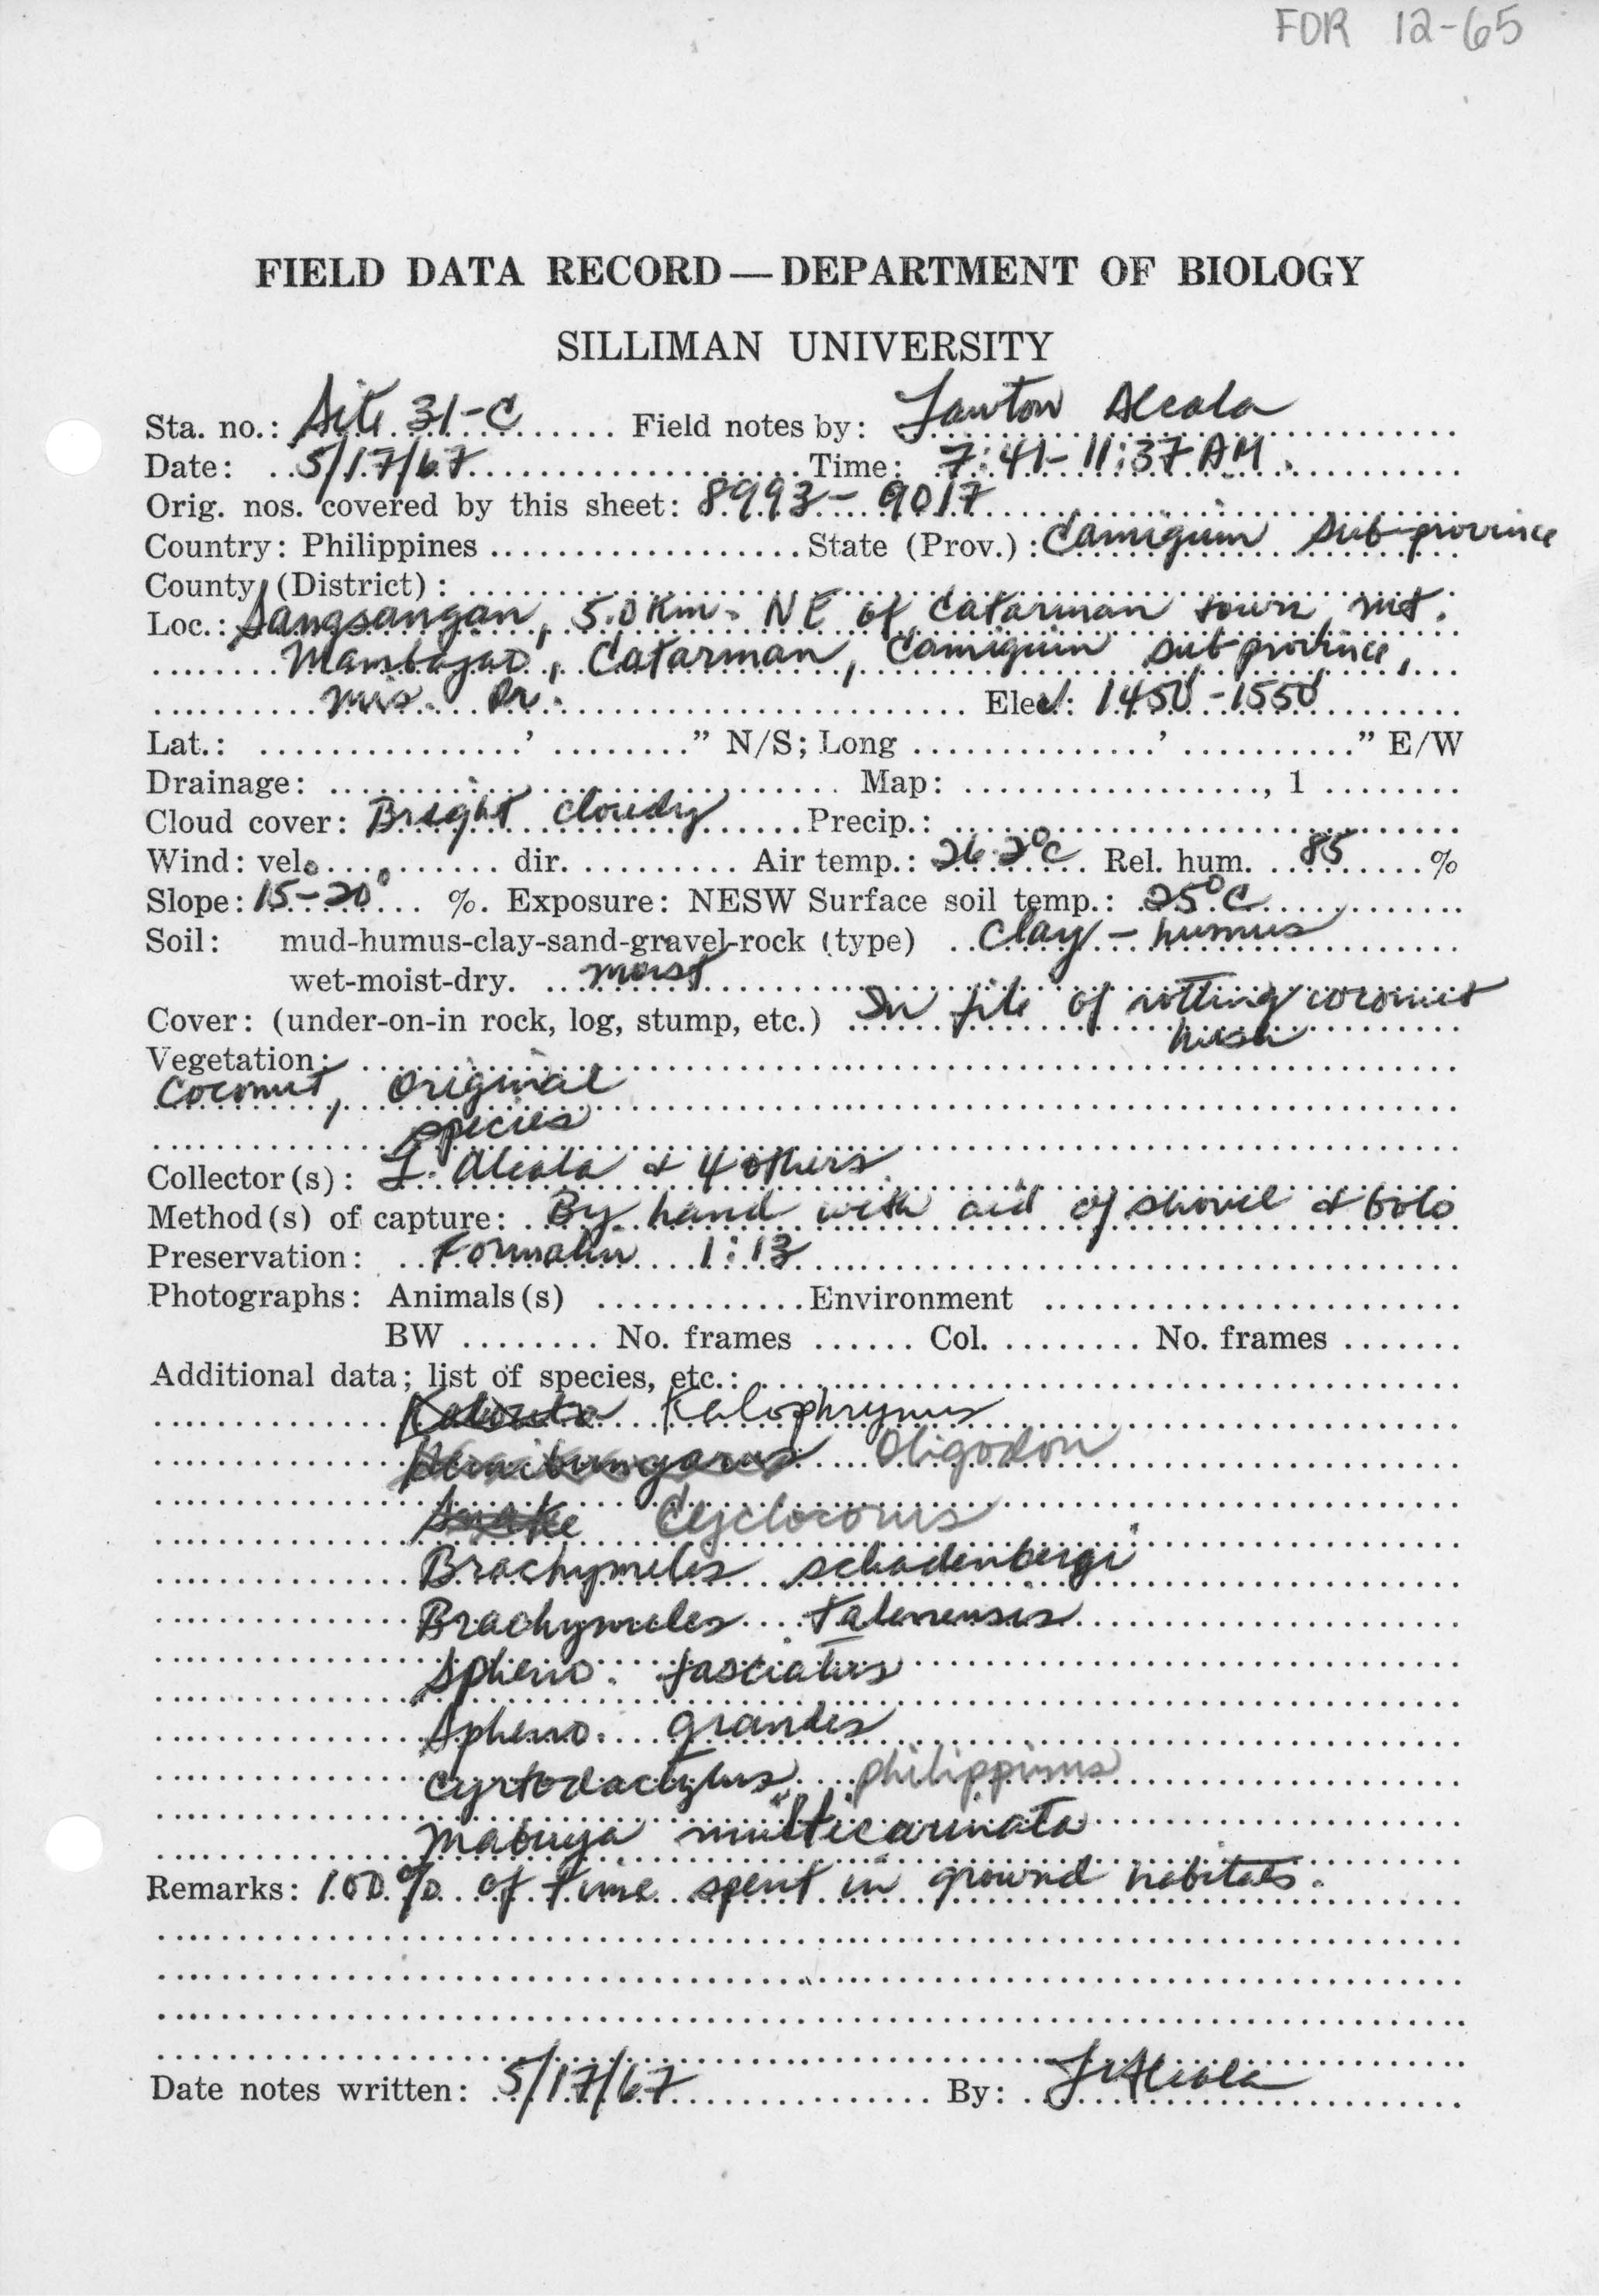 FDR 12-65
FIELD DATA RECORD—DEPARTMENT OF BIOLOGY
SILLIMAN UNIVERSITY
Sta. no.: Site 31-C Field notes by: Lawton Alcala
Date: 5/17/67 Time: 7:41-11:37 AM.
Orig. nos. covered by this sheet: 8993-9017
Country: Philippines State (Prov.): Camiguin Sub-province
County (District):
Loc.: Sangsangan, 5.0 Km. NE of Catarman town, mt.
Mambajao, Catarman, Camiguin subprovince,
mis. Or. Elev: 1450-1550'
Lat.: ' " N/S; Long ' " E/W
Drainage: Map: , 1
Cloud cover: Bright cloudy Precip.:
Wind: vel. dir. Air temp.: 26.2°C Rel. hum. 85 %
Slope: 15-20° %. Exposure: NESW Surface soil temp.: 25°C
Soil: mud-humus-clay-sand-gravel-rock (type) Clay - humus
wet-moist-dry. moist
Cover: (under-on-in rock, log, stump, etc.) In pile of rotting coconut
husk
Vegetation:
Coconut, original
species
Collector(s): L. Alcala & 4 others
Method(s) of capture: By hand with aid of shovel & bolo
Preservation: Formalin 1:13
Photographs: Animals(s) Environment
BW No. frames Col. No. frames
Additional data; list of species, etc.:
Kalophrynus
Hemibungarus Oligodon
Snake Cyclocorus
Brachymeles schadenbergi
Brachymeles talinensis
Spheno. fasciatus
Spheno. grandes
Cyrtodactylus philippinus
Mabuya multicarinata
Remarks: 100% of time spent in ground habitats.
Date notes written: 5/17/67 By: LAlcala